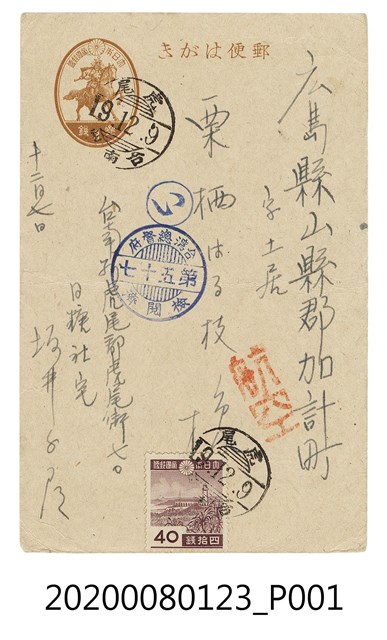 郵便はがき
大日本帝國郵便
虎尾
19.12.9
台南
広島縣山縣郡加計町
字土居
栗栖はる枝様
航空
い
台灣總督府
第五十七
檢閲濟
台南州虎尾郡虎尾街七〇
日糖社宅
坂井
十二月七日
虎尾
19.12.9
大日本帝國郵便
40
四拾錢
20200080123_P001